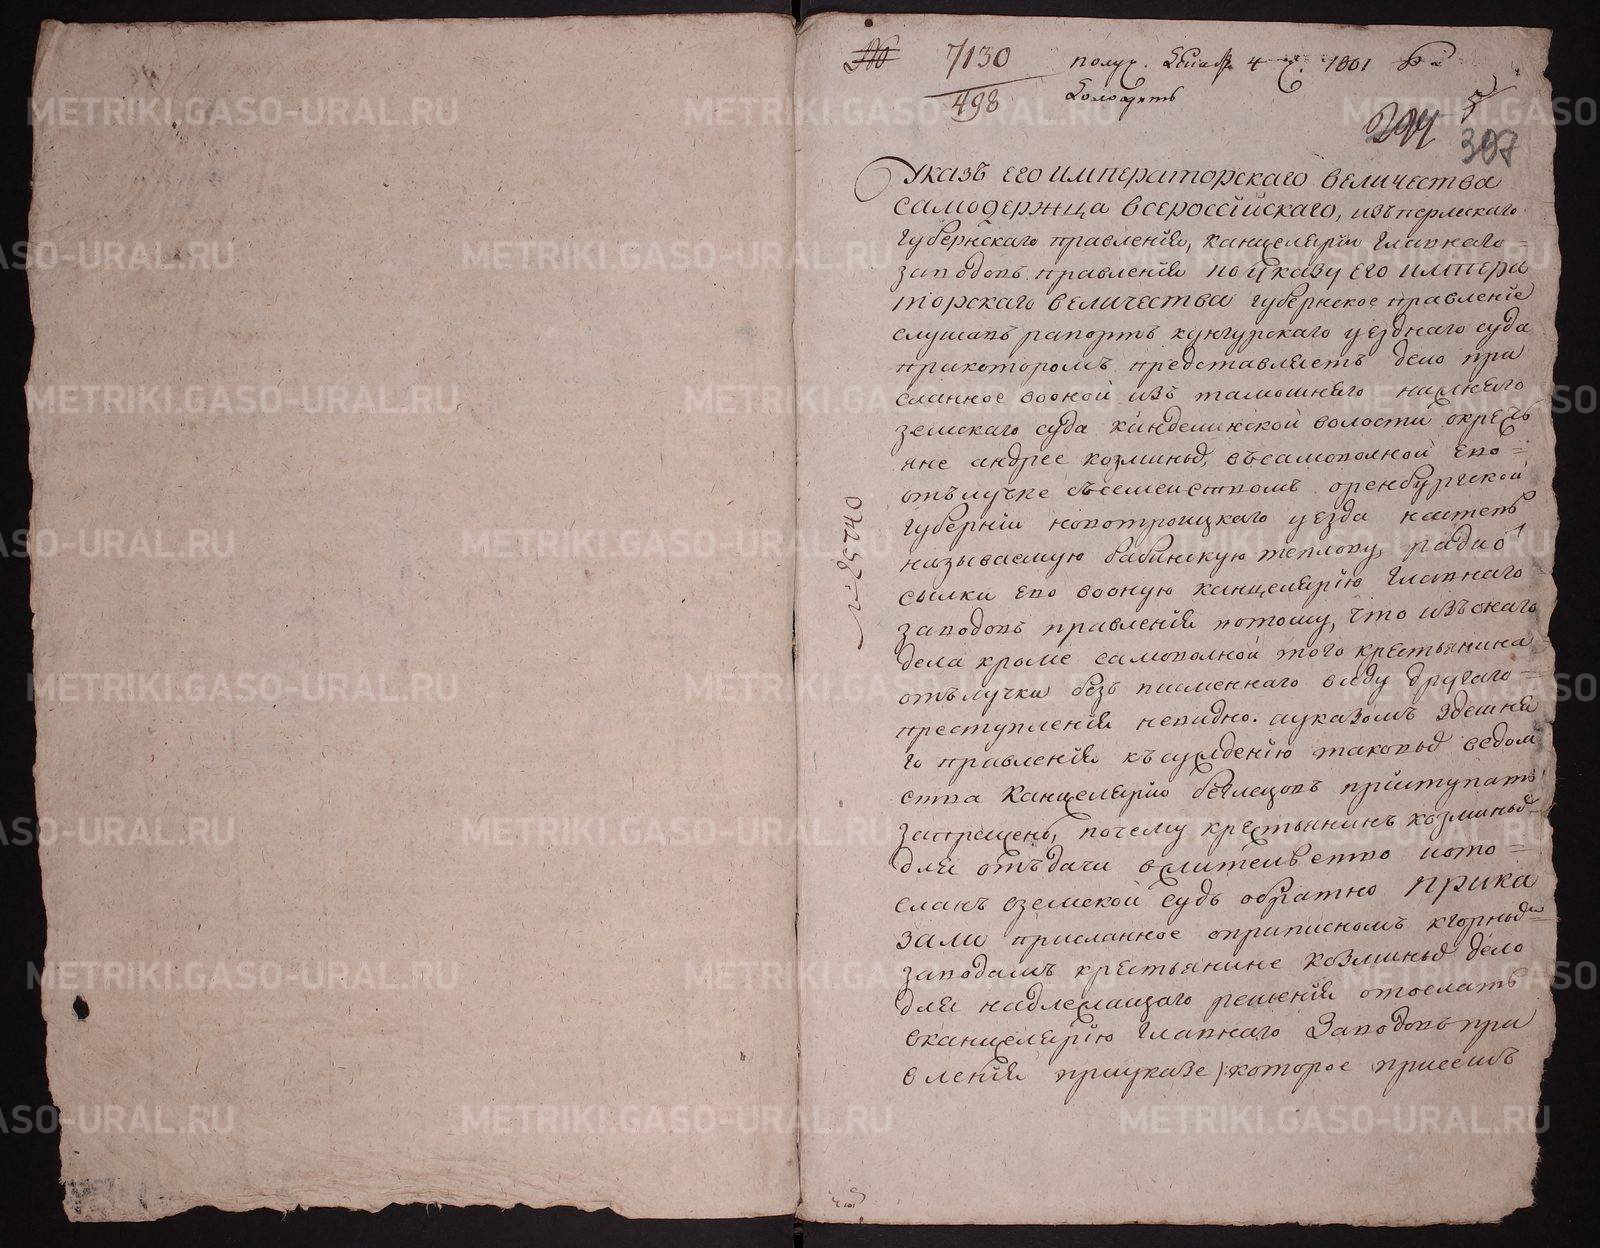 № 7130 получ. Генва 4 ч. 1801
498
294 7
307
Указъ его императорскаго величества
самодержца всероссійскаго, изъ пермскаго
губернскаго правленія, канцеляріи главнаго
заводовъ правленія по указу его импера
торскаго величества губернское правленіе
слушавъ рапортъ кунгурскаго уезднаго суда
прикоторомъ представляетъ дело при
сланное вооной изъ тамошняго нижняго
земскаго суда кинделинской волости окресть
яне андрее козминыхъ, въсамовольной ево
отълучке съсемействомъ оренбургской
губерніи новотроицкаго уезда настепь
называемую бабинскую теплову, радио
сылки ево вооную канцелярію главнаго
заводовъ правленія потому, что изъонаго
дела кроме самовольной того крестьянина
отълучки безъ писменнаго виду другаго
преступленія невидно. ауказомъ здешня
го правленія къ сужденію таковыхъ ведом
ства Канцеляріи беглецовъ приступать
запрещено, почему крестьянинъ козминыхъ
для отъдачи вжительство иото
сланъ вземской судъ обратно прика
зали присланное оприписномъ кгорнымъ
заводамъ крестьянине козминыхъ дело
для надлежащаго решенія отослать
вканцелярію главнаго Заводовъ пра
вленія приуказе /:которое присемъ